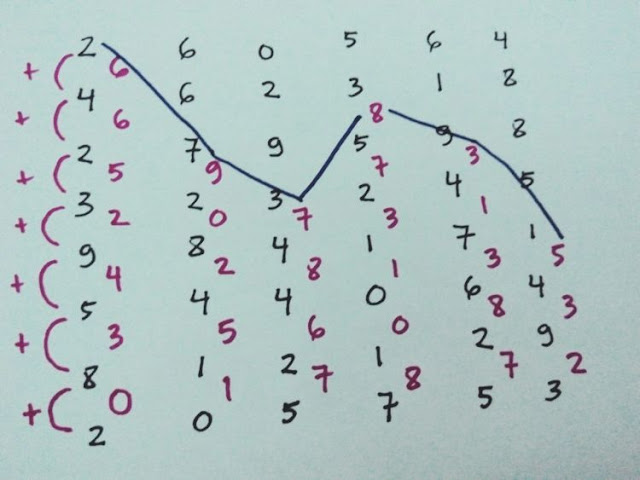 2 6 0 5 6 4
+ ( 6
4 6 2 3 1 8
+ ( 6 8
2 7 9 5 9 8
+ ( 5 9 7 3
3 2 3 2 4 5
+ ( 2 0 7 3 1
9 8 4 1 7 1
+ ( 4 2 8 1 3 5
5 4 4 0 6 4
+ ( 3 5 6 0 8 3
8 1 2 1 2 9
+ ( 0 1 7 8 7 2
2 0 5 7 5 3